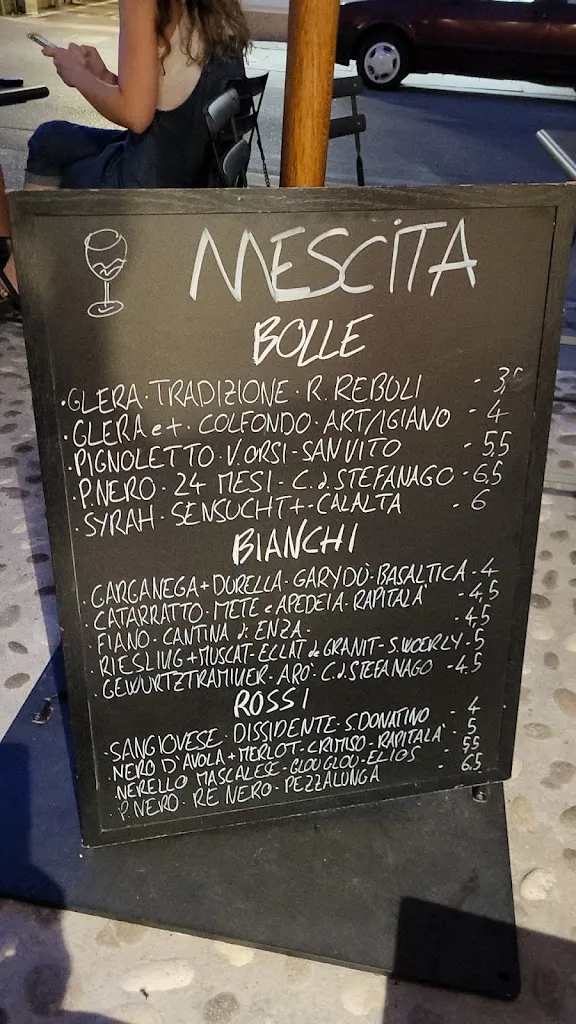 MESCITA
BOLLE
· GLERA · TRADIZIONE · R. REBOLI - 3,5
· GLERA et · COLFONDO · ARTIGIANO - 4
· PIGNOLETTO · V. ORSI - SAN VITO - 5,5
· P.NERO · 24 MESI - C.d. STEFANAGO - 6,5
· SYRAH · SENSUCHT - CALALTA - 6
BIANCHI
· GARGANEGA + DURELLA - GARYDÙ - BASALTICA - 4
· CATARRATTO · METE e APEDEIA - RAPITALÀ - 4,5
· FIANO - CANTINA di ENZA. - 4,5
· RIESLING + MUSCAT - ECLAT de GRANIT - S. WOERLY - 5
· GEWURTZTRAMINER - ARO - C.d. STEFANAGO - 4,5
ROSSI
· SANGIOVESE - DISSIDENTE - S.DONATINO - 4
· NERO D'AVOLA + MERLOT - CRIMISO - RAPITALÀ - 5
· NERELLO MASCALESE - GLOU GLOU - ELIOS - 5,5
· P.NERO - RE NERO - PEZZALUNGA - 6,5